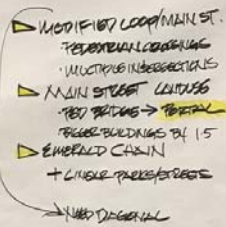 MODIFIED LOOP/MAIN ST.
· PEDESTRIAN CROSSINGS
· MULTIPLE INTERSECTIONS
MAIN STREET LANDUSE
· PED BRIDGE → PORTAL
BIGGER BUILDINGS BY 1.5
EMERALD CHAIN
+ LINEAR PARKS/STREETS
NEED DIAGONAL